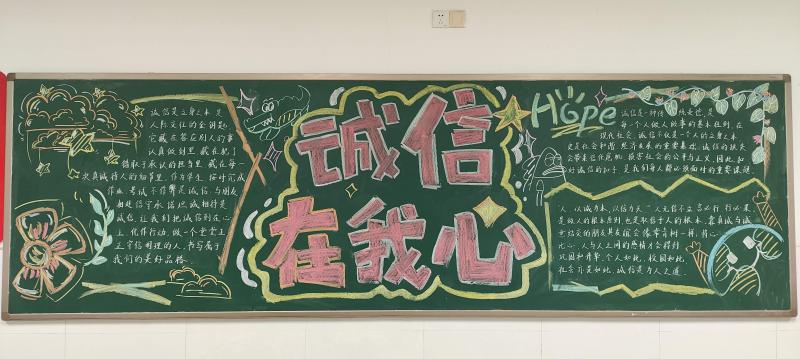 诚信是立身之本 是
人际交往的金钥匙
它藏在答应别人的事
认真做到里 藏在犯了
错敢于承认的担当里 藏在每一
次真诚待人的细节里 作为学生 按时完成
作业 考试不作弊是诚信 与朋友
相处信守承诺 坦诚相待是
诚信 让我们把诚信刻在心
上 化作行动 做一个堂堂正
正守信用理的人 书写属于
我们的美好品格
诚信
在我心
Hope
诚信是一种传统美德 是
每一个人做人做事的基本准则 在
现代社会 诚信不仅是一个人的立身之本
更是社会和谐 经济发展的重要基础 诚信的缺失
会带来信任危机 损害社会的公平与正义 因此 扣
好诚信的扣子 是我们每人都必须面对的重要课题
人 以诚为本 以信为天 人无信不立 言必行 行必果
是做人的根本原则 也是取信于人的根本 靠真诚与诚
心 人与人之间的感情才会得到
巩固和升华 个人如此 校园如此
社会亦是如此 诚信是为人之道